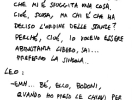 CHE MI È SUGGITA UNA COSA,
CIOÈ, SCUSA, MA CHI È CHE HA
DECISO L'ORDINE DELLE STANZE?
PERCHÉ, CIOÈ, IO POTEVO ESSERE
ABBASTANZA LIBERO, SAI...
PREFERIVO LA SINGOLA.
LEO:
-EHM... BÈ, ECCO, BOBONI,
QUANDO HO PRESO LE CHIAVI PER